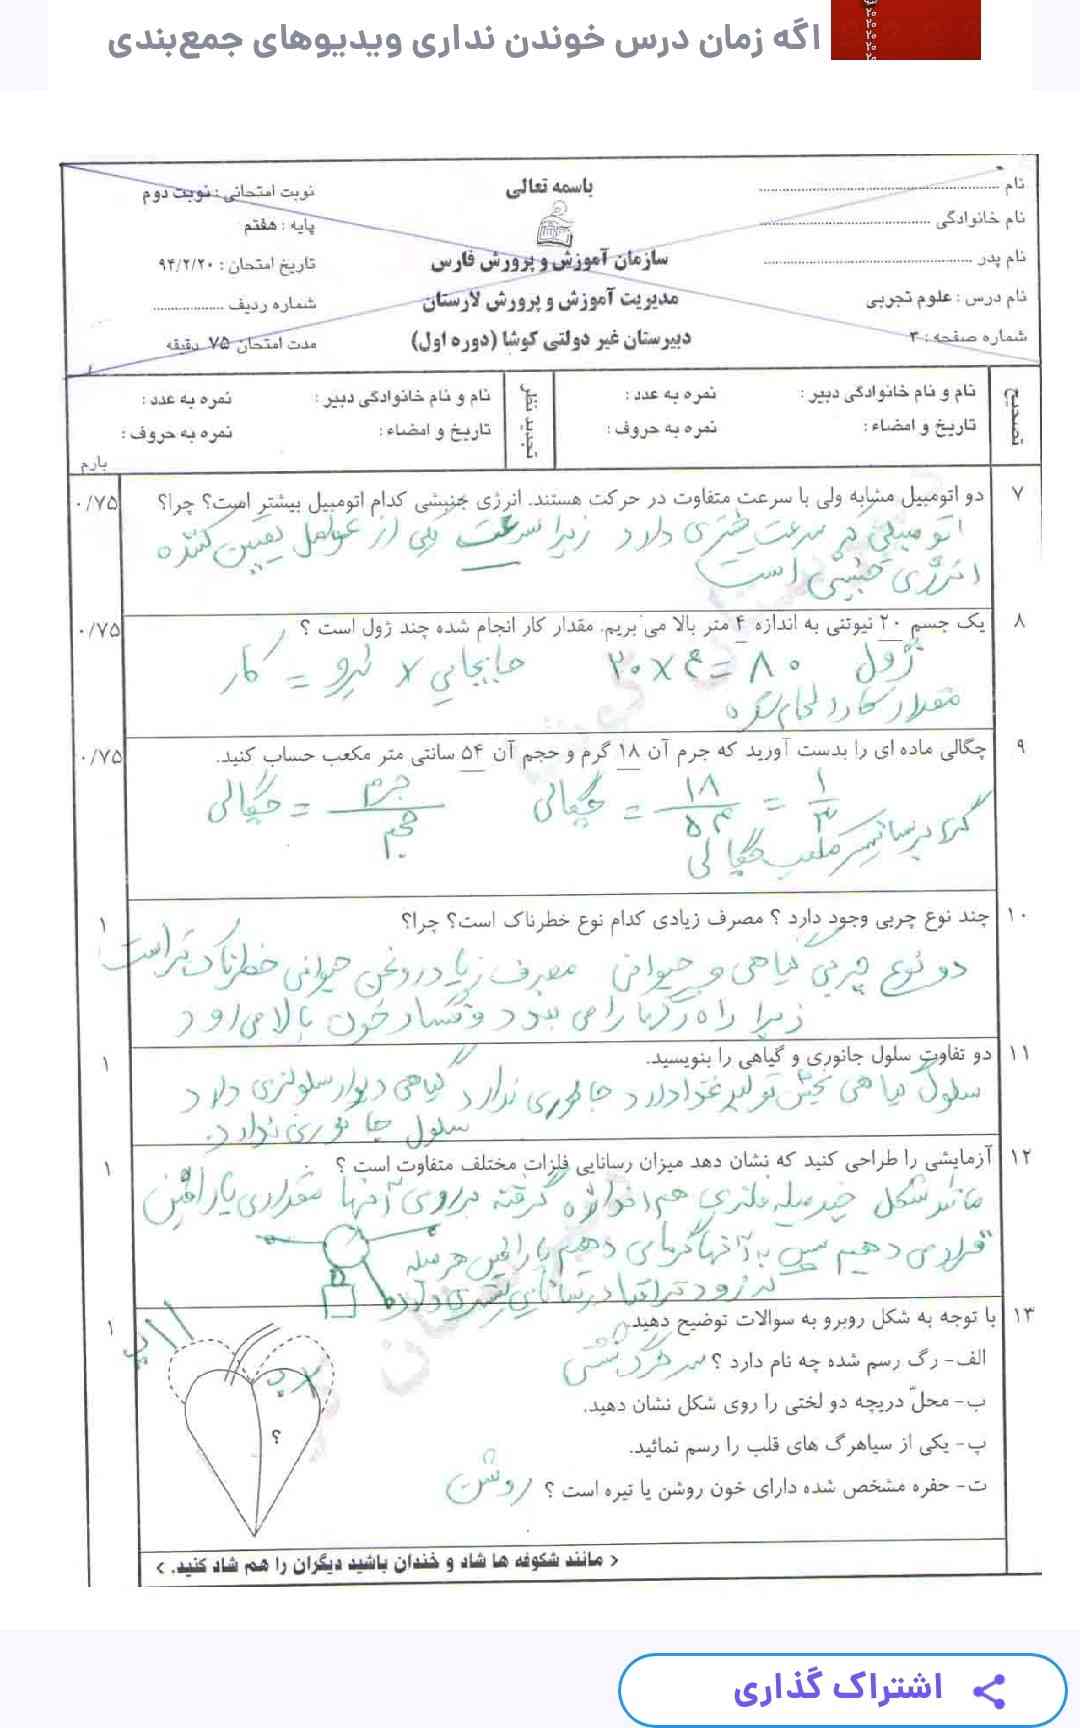 اگه زمان درس خوندن نداری ویدیوهای جمع‌بندی
باسمه تعالی
نام
نام خانوادگی
نام پدر
نام درس : علوم تجربی
شماره صفحه : ۳
سازمان آموزش و پرورش فارس
مدیریت آموزش و پرورش لارستان
دبیرستان غیر دولتی کوشا (دوره اول)
نوبت امتحانی : نوبت دوم
پایه : هفتم
تاریخ امتحان : ۹۴/۲/۲۰
شماره ردیف
مدت امتحان ۷۵ دقیقه
تصحیح
نام و نام خانوادگی دبیر : نمره به عدد :
تاریخ و امضاء : نمره به حروف :
تجدید نظر
نام و نام خانوادگی دبیر : نمره به عدد :
تاریخ و امضاء : نمره به حروف :
بارم
۷ دو اتومبیل مشابه ولی با سرعت متفاوت در حرکت هستند. انرژی جنبشی کدام اتومبیل بیشتر است؟ چرا؟ ۰/۷۵
اتومبیلی که سرعت بیشتری دارد زیرا سرعت یکی از عوامل تعیین کننده
انرژی جنبشی است
۸ یک جسم ۲۰ نیوتنی به اندازه ۴ متر بالا می بریم. مقدار کار انجام شده چند ژول است ؟ ۰/۷۵
کار = نیرو × جابجایی ۲۰×۴=۸۰ ژول
مقدار کار انجام شده
۹ چگالی ماده ای را بدست آورید که جرم آن ۱۸ گرم و حجم آن ۵۴ سانتی متر مکعب حساب کنید. ۰/۷۵
چگالی = جرم / حجم چگالی = ۱۸ / ۵۴ = ۱ / ۳
گرم بر سانتیمتر مکعب چگالی
۱۰ چند نوع چربی وجود دارد ؟ مصرف زیادی کدام نوع خطرناک است؟ چرا؟ ۱
دو نوع چربی گیاهی و حیوانی مصرف زیاد روغن حیوانی خطرناک تر است
زیرا راه رگها را می بندد و فشار خون بالا می رود
۱۱ دو تفاوت سلول جانوری و گیاهی را بنویسید. ۱
سلول گیاهی بخش تولید غذا دارد جانوری ندارد گیاهی دیوار سلولزی دارد
سلول جانوری ندارد.
۱۲ آزمایشی را طراحی کنید که نشان دهد میزان رسانایی فلزات مختلف متفاوت است ؟ ۱
مانند شکل چند میله فلزی هم اندازه گرفته بر روی آنها مقداری پارافین
قرار می دهیم سپس به آنها گرمای دهیم پارافین هر میله
که زودتر افتاد رسانایی بیشتری دارد
۱۳ با توجه به شکل روبرو به سوالات توضیح دهید. ۱
الف- رگ رسم شده چه نام دارد ؟ سرخرگ ششی
ب- محلّ دریچه دو لختی را روی شکل نشان دهید.
پ- یکی از سیاهرگ های قلب را رسم نمائید.
ت- حفره مشخص شده دارای خون روشن یا تیره است ؟ روشن
پ
ب
؟
< مانند شکوفه ها شاد و خندان باشید دیگران را هم شاد کنید. >
اشتراک گذاری